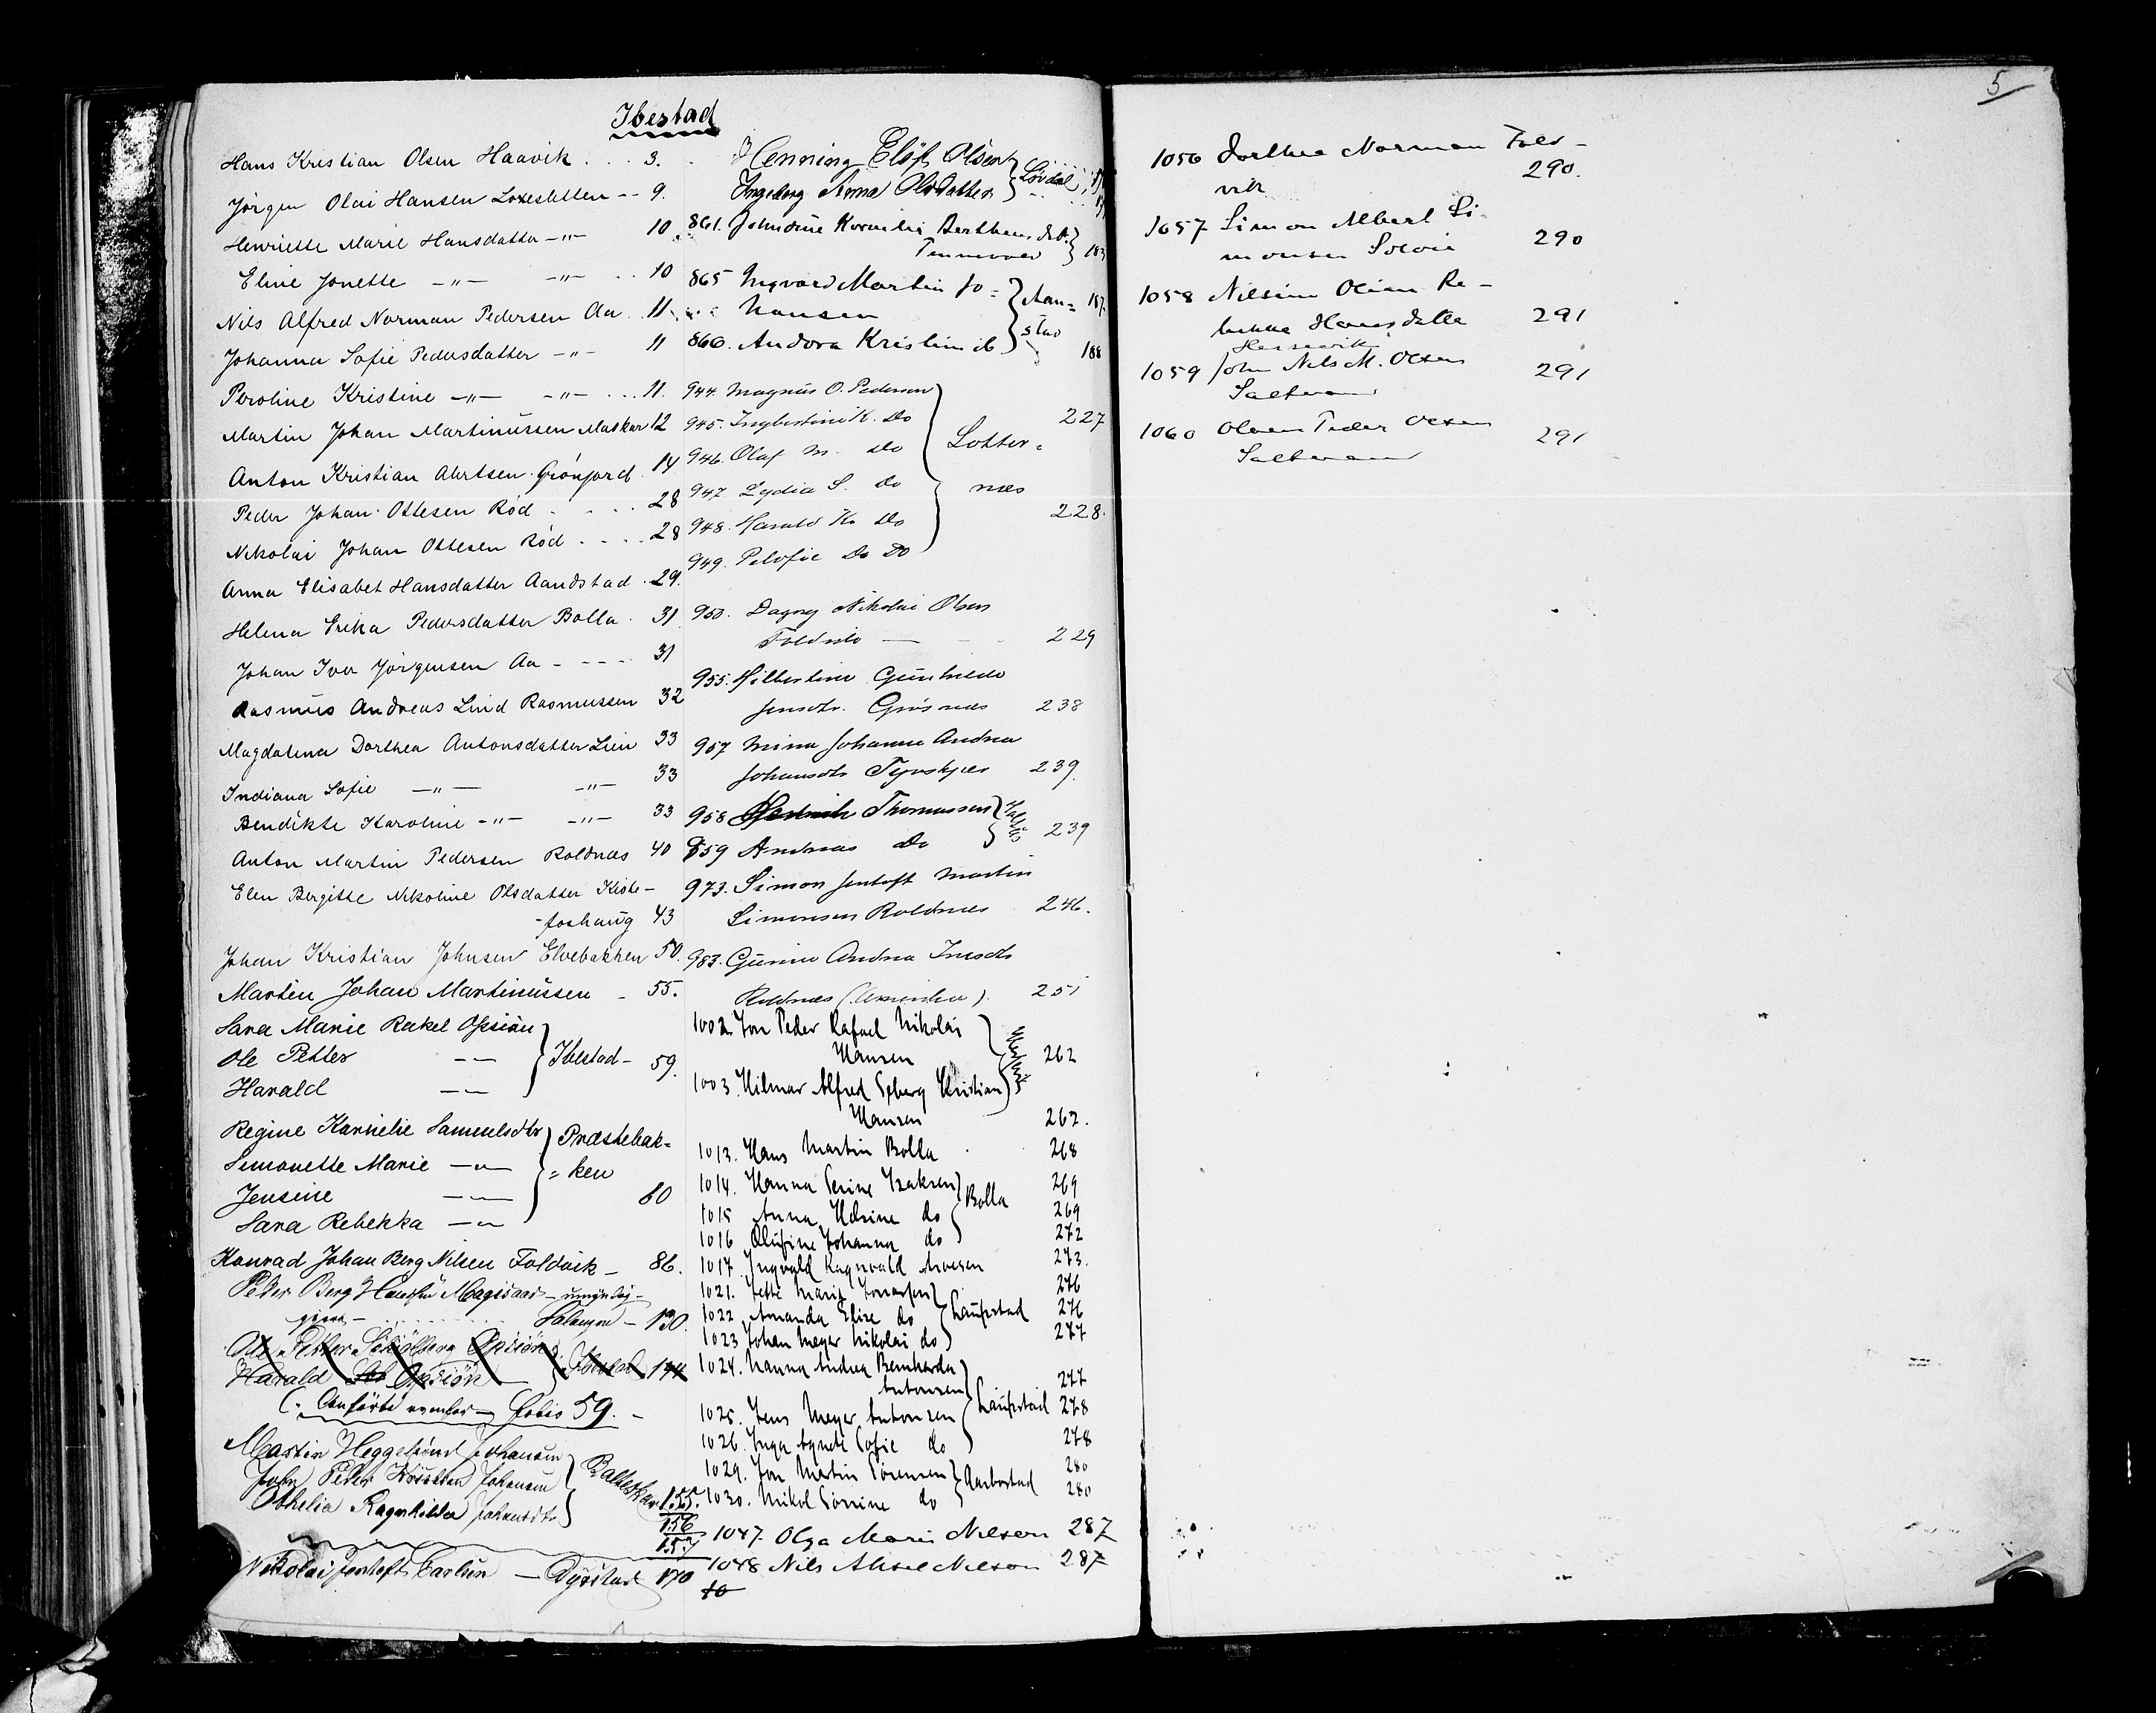 Ibestad
Hans Kristian Olsen Haavik . . . 3.
Jörgen Olai Hansen Loxesletten - - 9.
Henriette Marie Hansdatter -"- 10.
Eline Jonette -"- -"- . . 10
Nils Alfred Norman Pedersen Aa . 11
Johanna Sofie Pedersdatter -"- 11
Peroline Kristine -"- -"- . . . 11.
Martin Johan Martinussen Maskar 12
Anton Kristian Ahrtsen Grönjord 14
Peder Johan Ottesen Röd . . . . 28
Nikolai Johan Ottesen Röd . . . . 28
Anna Elisabet Hansdatter Aandstad . 29.
Helena Erika Pedersdatter Bolla . 31
Johan Iver Jörgensen Aa - - - - 31
Rasmus Andreas Lind Rasmussen 32
Magdalena Dorthea Antonsdatter Lien 33
Indiana Sofie -"- -"- 33
Bendikte Karoline -"- -"- 33
Anton Martin Pedersen Roldnæs 40
Elen Bergitte Nikoline Olsdatter Kiste-
-foshaug 43
Johan Kristian Johnsen Elvebakken 50.
Martin Johan Martinussen - 55.
Sara Marie Rakel Opsiön
Ole Petter -"- Ibestad - 59.
Harald -"-
Regine Kornelie Samuelsdtr Præstebak=
Simonette Marie -"- = ken
Jensine -"- 60
Sara Rebekka -"-
Konrad Johan Berg Nilsen Foldvik - 86.
Peder Berg Hansen - umyndig-
gjort - Salangen - 130.
Ole Petter Opsiön
Harald Opsiön Ibestad 144
(. Anførte ovenfor folio 59. -
Martin Heggelund Johansen
John Peder Johansen 155.
Othelia Ragnhilda Johansdtr 156
157
Nikolai Jentoft Carlsen - Dyrstad 170
Henning Elöf Olsen
Ingeborg Anna Olsdatter Lövdal
861. Johndine Kornelia Bertheus. dat.
Tennevoll 183
865 Ingvard Martin Jo= Aan= 187.
hansen stad
866. Andora Kristine ib 188
944. Magnus O. Pedersen
945. Ingbertine K. Do 227
946. Olaf M. do Lotter=
947. Lydia S. Do næs
948. Harald K. Do 228.
949. Pelofie Do Do
950. Dagny Nikolai Olsen
Foldvik — 229
955. Hilbertine Gunhilde
Jensdtr. Grösnæs 238
957 Mina Johanne Andrea
Johansdtr Tyvskjær 239.
958 Thomassen
959 Andreas Do 239
973. Simon Jentoft Martin
Simonsen Roldnæs 246.
983. Gunine Andrea Jensdtr
Roldnæs (Amerika). 251
1002. Jon Peder Rafael Nikolai
Hansen 262
1003. Hilmar Alfred Kristian
Hansen 262.
1013. Hans Martin Bolla . 268
1014. Hanna Serine Isaksen 269
1015 Anna Helsine do Bolla 269
1016 Olufine Johanna do 272
1017 Ingvald Ragnvald Arnesen 273.
1021. Jette Marie 276
1022 Amanda Elise do Laupstad 276
1023 Johan Meyer Nikolai do 277
1024. Nanna Andrea Bernharda
Antonsen 277
1025. Jens Meyer Antonsen Laupstad 278
1026. Inga Agnete Sofie do 278
1029. Jon Martin Sörensen Aarbostad 280
1030. Nikol Sörrine do 280
1047. Olga Marie Nilsen 287
1048 Nils Aksel Nilsen 287
10
5
1056 Dorthea Norman Fold-
vik 290.
1057 Simon Albert Si-
monsen 290
1058 Nilsine Oline Re-
bekka Hansdatter 291
1059 John Nils M. Olsen
Saltvand 291
1060 Olsen
Saltvand 291